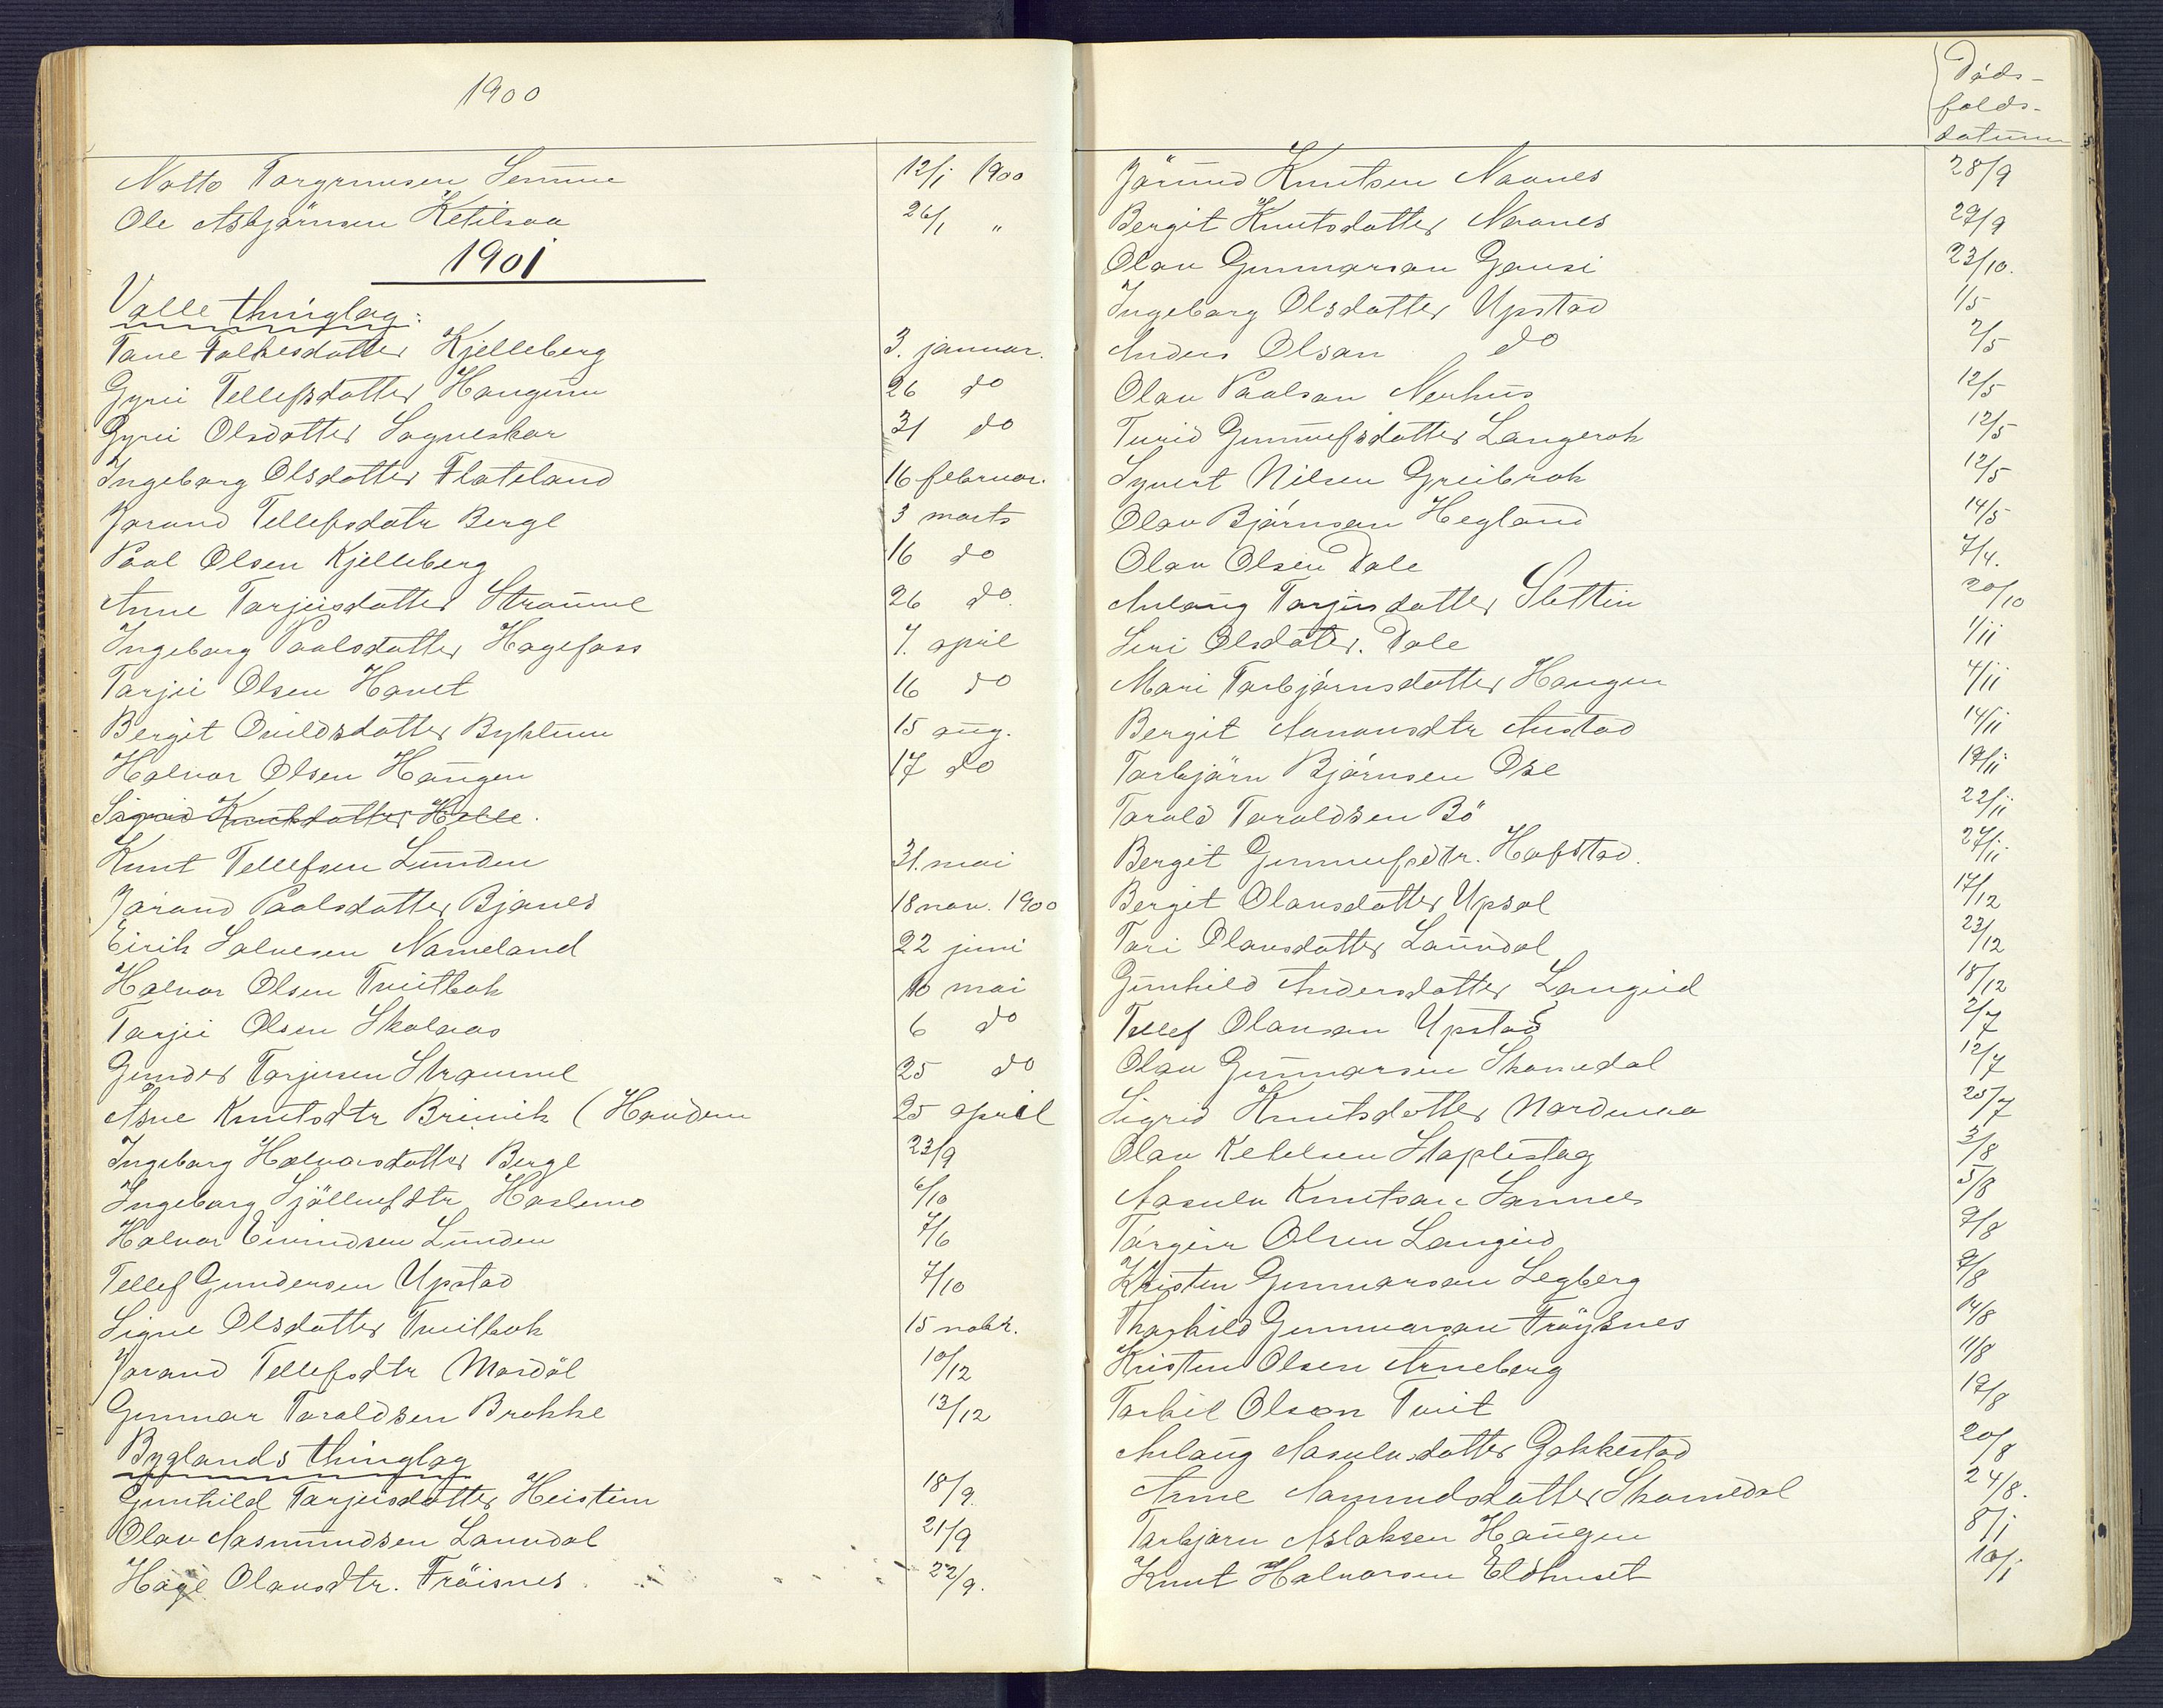 1900
Notto Torgrimsen Lemme 12/1 1900
Ole Asbjørnsen Ketilsaa 26/1 "
1901
Valle thinglag:
Tone Folkesdotter Kjelleberg 3. januar.
Gyrii Tellefsdotter Haugum 26 do
Gyrii Olsdotter Sagneskar 31 do
Ingeborg Olsdotter Flateland 16 februar.
Jorand Tellefsdatr Berge 3 marts
Paal Olsen Kjelleberg 16 do
Anne Torjusdotter Stramme 26 do.
Ingeborg Paalsdotter Hagefoss 7. april
Tarjei Olsen Havet 16 do
Bergit Ovildsdotter Byklum 15 aug.
Halvor Olsen Haugen 17 do
Sigrid Knutsdotter Helle.
Knut Tellefsen Lunden 31. mai
Jorand Paalsdotter Bjanes 18 nov. 1900
Eirik Salvesen Nomeland 22 juni
Halvor Olsen Tveitbok 10 mai
Tarjei Olsen Skolaas 6 do
Gunder Torjusen Stramme 25 do
Asne Knutsdtr Brimik (Houdem 25 april
Ingeborg Halvorsdotter Berge 23/9
Ingeborg Sjöllufsdtr. Haslemo 6/10
Halvor Eivindsen Lunden 7/6
Tellef Gundersen Upstad 7/10
Signe Olsdotter Tveitbok 15 nobr.
Jorand Tellefsdtr Mosdöl 10/12
Gunnar Taroldsen Brokke 13/12
Byglands thinglag
Gunhild Tarjeisdotter Heistein 18/9.
Olav Aasmundsen Lauvdal 21/9
Hæge Olavsdtr. Fröisnes 22/9.
Döds-
falds-
datum
Jörund Knutsen Naanes 28/9
Bergit Knutsdotter Naanes 29/9
Olav Gunnarson Gausi 23/10.
Ingeborg Olsdotter Upstad 1/5
Anders Olson do 2/5
Olav Paalson Nerhus 12/5
Turid Gunnufsdotter Langerok 12/5
Syvert Nilsen Greibrok 12/5
Olav Björnson Hegland 14/5
Olav Olsen Dale 7/4.
Aulaug Torjusdotter Slettin 20/10
Siri Olsdoter. Dale 1/11
Mari Torbjörnsdotter Haugen 4/11
Bergit Aanonsdtr Austad 14/11
Torbjörn Björnsen Ose 19/11
Tarald Taraldsen Bö 22/11
Bergit Gunnufsdtr. Hofstad. 27/11
Bergit Olavsdotter Upsal 17/12
Tari Olavsdotter Lauvdal 23/12
Gunhild Andersdotter Langeid 18/12
Tellef Olavson Upstad 2/7
Olav Gunnarson Skomedal 12/7
Sigrid Knutsdotter Nordenaa 25/7
Olav Ketelsen Staplestog 3/8
Aasulv Knutson Sannes 5/8
Torgeir Olsen Langeid 7/8
Kristen Gunnarson Legberg 9/8
Thorkild Gunnarson Fröysnes 14/8
Kristen Olsen Arneberg 11/8
Torkil Olson Tveit 19/8
Aulaug Aasulvsdotter Gakkestad 20/8
Anne Aamundsdotter Skomedal 24/8.
Torbjörn Aslaksen Haugen 8/1
Knut Halvorsen Eldhuset 10/1